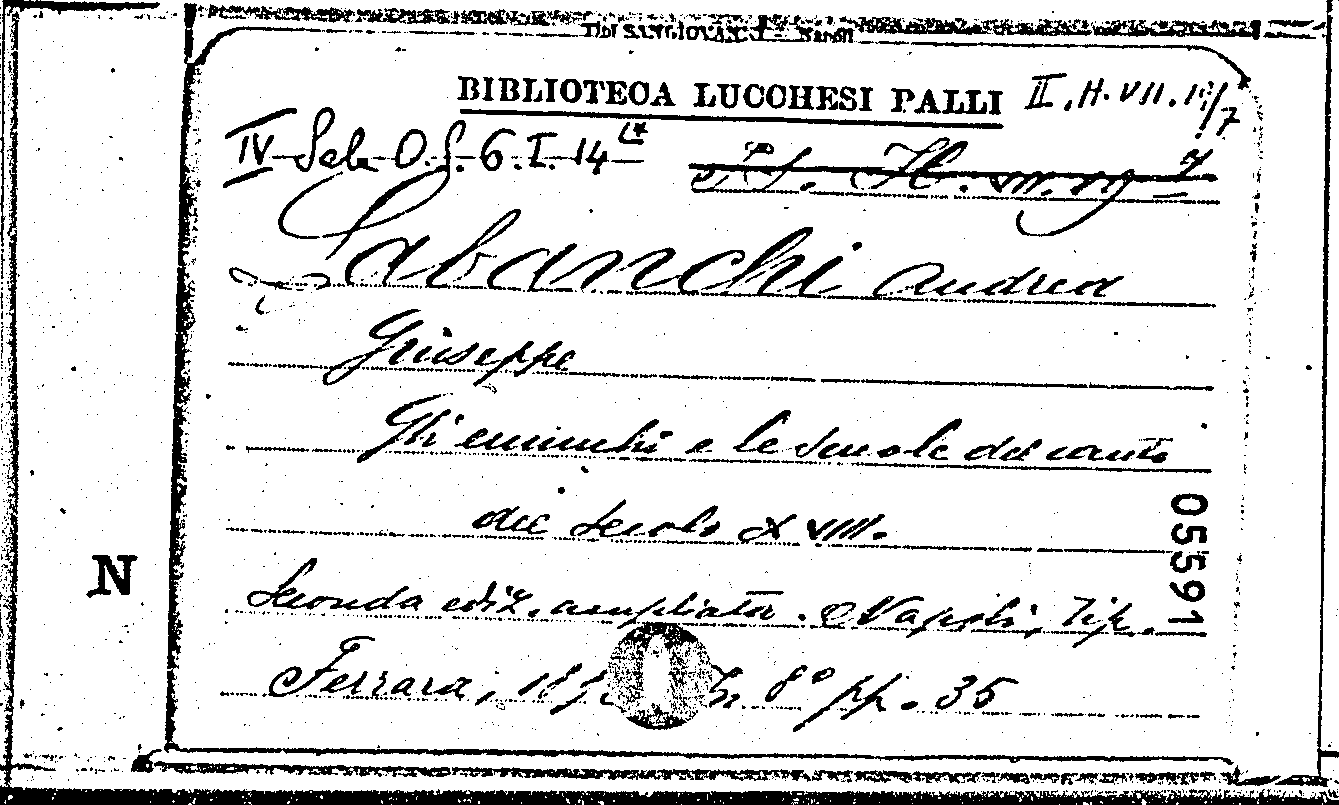 Tipi SANGIOVANNI - Napoli
BIBLIOTECA LUCCHESI PALLI II. H. VII. 19/7
IV Sala O.S. 6. I. 14
Sabanchi Andrea
Giuseppe
Gli eunuchi e le scuole del canto
del secolo XVIII.
Seconda ediz. ampliata. Napoli, Tip.
Ferrara, 189 In 8° pp. 35
05591
N